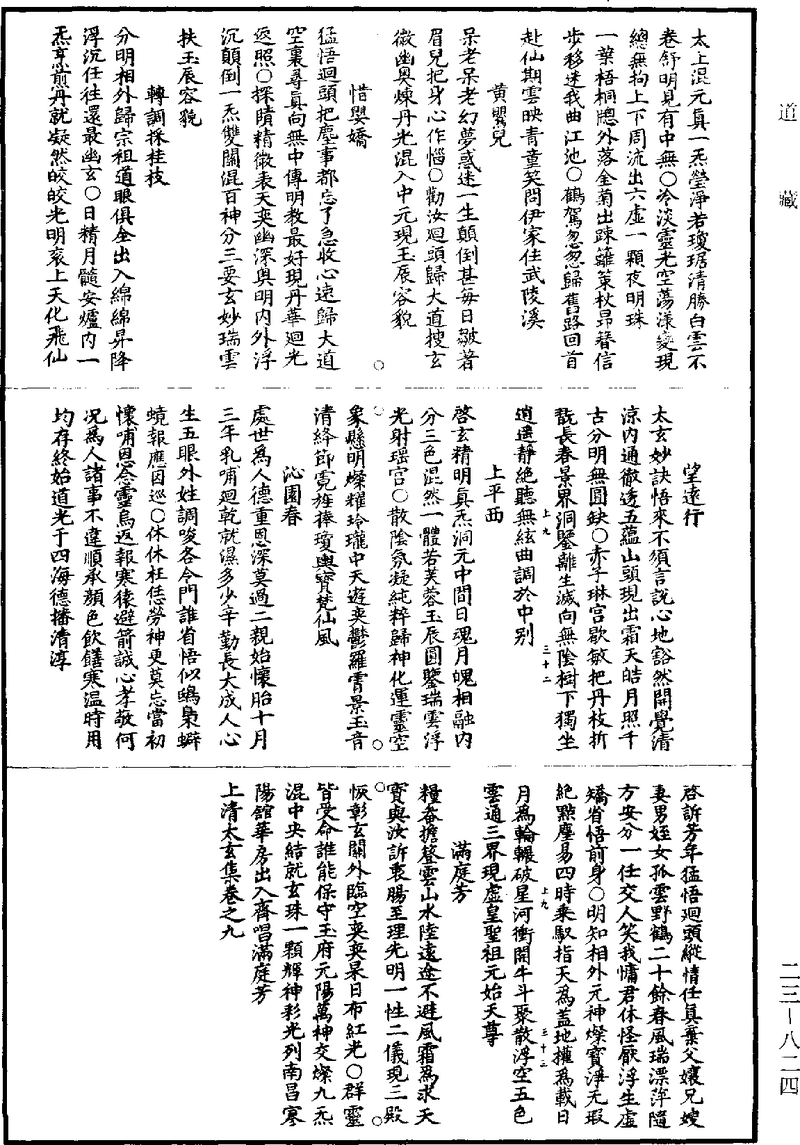 道藏
太上混元真一炁瑩淨若瓊琚清勝白雲不
卷舒明見有中無○冷淡靈光空蕩漾變現
總無拘上下周流出六虛一顆夜明珠
一葉梧桐牕外落金菊出疎籬策杖昂藜信
步移迷我曲江池○鶴駕忽忽歸舊路回首
赴仙期雲映青童笑問伊家住武陵溪
黃嬰兒
呆老呆老幻夢惑迷一生顛倒甚每日皺著
眉兒把身心作惱○勸汝迴頭歸大道搜玄
微幽奧煉丹光混入中元現玉辰容貌
惜嬰嬌
猛悟迴頭把塵事都忘了急收心速歸大道
空裏尋真向無中傳明教最好現丹華迴光
返照○探賾精微表天奕幽深與明內外浮
沉顛倒一炁雙關混百神分三要玄妙瑞雲
扶玉辰容貌
轉調採桂枝
分明相外歸宗祖道眼俱全出入綿綿昇降
浮沉任往還最幽玄○日精月髓安爐內一
炁烹煎丹就凝然皎皎光明衮上天化飛仙
望遠行
太玄妙訣悟來不須言說心地豁然開覺清
涼內通徹透五蘊山頭現出霜天皓月照千
古分明無圓缺○赤子琳宫歇敏把丹枝折
翫長春景界洞鑒離生滅向無陰樹下獨坐
逍遥靜絕聽無絃曲調於中别
上九
三十二
上平西
啓玄精明真炁洞元中間日魂月魄相融内
分三色混然一體若芙蓉玉辰圓鑒瑞雲浮
光射瑶宫○散陰氛凝純粹歸神化運靈空
象懸明燦耀玲瓏中天遊奕鬱羅霄景玉音
清絳節霓旌捧瓊輿寳梵仙風
沁園春
處世為人德重恩深莫過二親始懷胎十月
三年乳哺迴乾就濕多少辛勤長大成人心
生五眼外姓調唆各令門誰省悟似鴟梟蟒
蜺報應因巡○休休枉恁勞神更莫忘當初
懷哺恩念靈烏返報寒猿避箭誠心孝敬何
况為人諸事不違順承顏色飲饍寒温時用
均存終始道光于四海德播清淳
啓訴芳年猛悟迴頭縱情任真棄父孃兄嫂
妻男姪女孤雲野鶴二十餘春風瑞漂萍隨
方安分一任交人笑我慵君休怪厭浮生虛
矯省悟前身○明知相外元神燦寳淨无瑕
絶點塵易四時乘馭指天為蓋地擁為載日
月為輪輾破星河衝開牛斗聚散浮空五色
雲通三界現虛皇聖祖元始天尊
上九
三十二
滿庭芳
糧畚擔簦雲山水陸遠途不避風霜為求天
寳與汝訴裏腸至理先明一性二儀現三殿
恢彰玄關外臨空奕奕杲日布紅光○群靈
皆受命誰能保守玉府元陽萬神交燦九炁
混中央結就玄珠一顆輝神彩光列南昌寒
陽舘華房出入齊唱滿庭芳
上清太玄集卷之九
二三―八二四